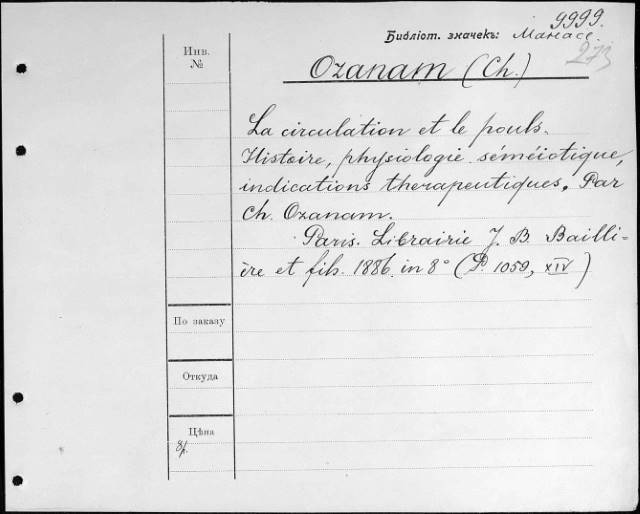 9999.
Библіот. значекъ: Манасс.
273
Инв.
№
Ozanam (Ch.)
La circulation et le pouls.
Histoire, physiologie. séméiotique,
indications therapeutiques. Par
Ch. Ozanam.
Paris. Librairie J. B. Bailli-
ère et fils. 1886. in 8° (P. 1059, XIV)
По заказу
Откуда
Цѣна